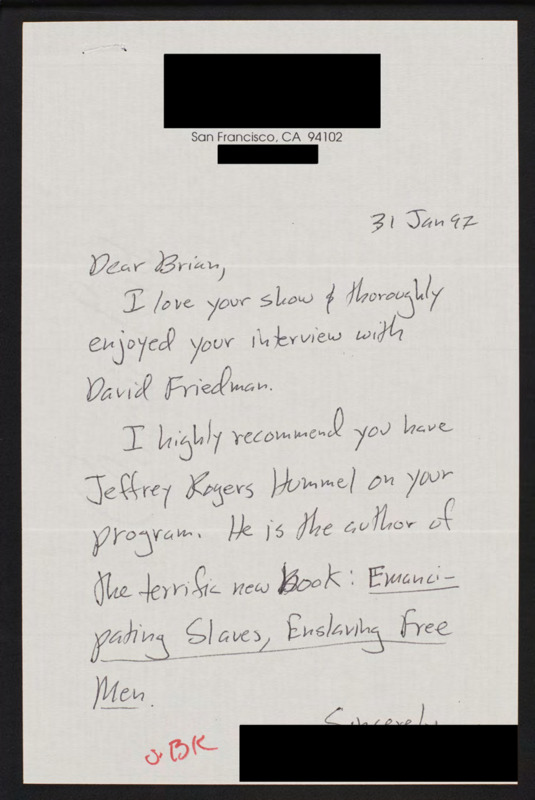 San Francisco, CA 94102
31 Jan 97
Dear Brian,
I love your show & thoroughly
enjoyed your interview with
David Friedman.
I highly recommend you have
Jeffrey Rogers Hummel on your
program. He is the author of
the terrific new Book: Emanci-
pating Slaves, Enslaving Free
Men.
Sincerely
BK